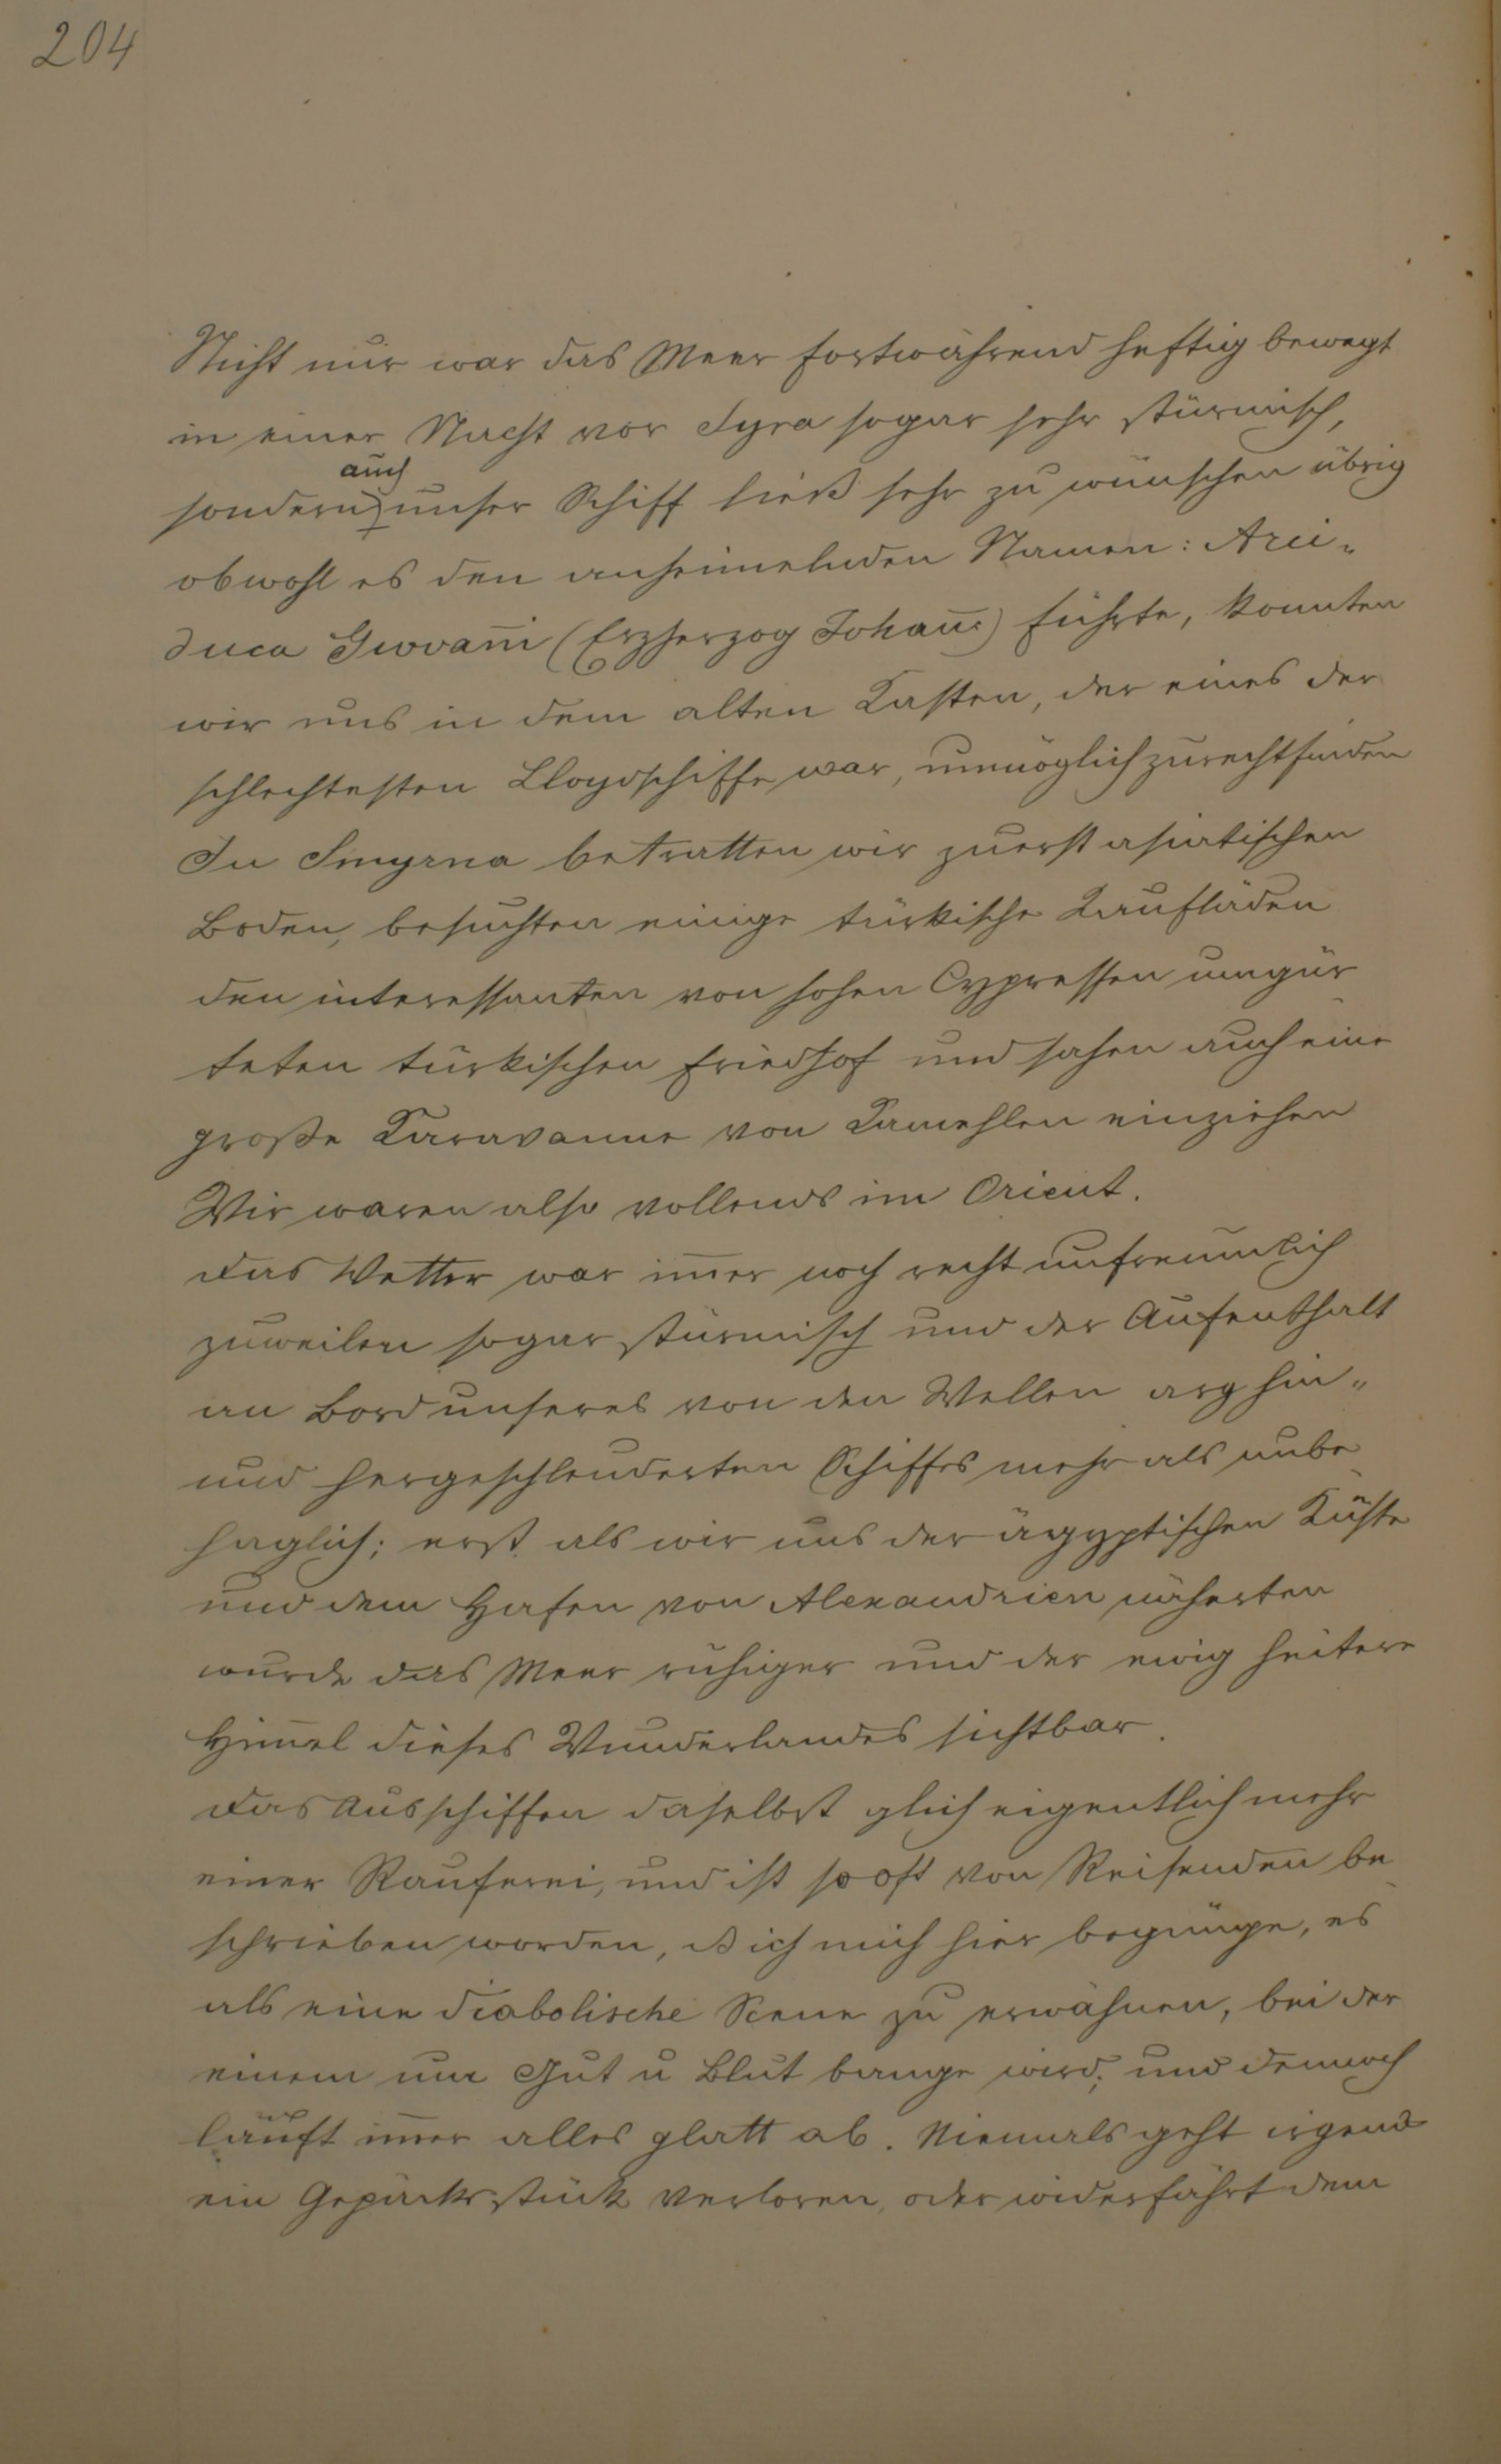 204
Nicht nur war das Meer fortwährend heftig bewegt
in einer Nacht vor Syra sogar sehr stürmisch,
auch
sondern unser Schiff ließ sehr zu wünschen übrig
obwohl es den anheimelnden Namen: Arci-
duca Giovan̅i (Erzherzog Johan̅s) führte, konnten
wir uns in dem alten Kasten, der eines der
schlechtesten Lloydschiffe war, unmöglich zurechtfinden
In Smyrna betratten wir zuerst asiatischen
Boden, besuchten einige türkische Kaufläden
den interessanten von hohen Cypressen umgür
teten türkischen Friedhof und sahen auch eine
große Karavanne von Kamehlen einziehen
Wir waren also vollends im Orient.
Das Wetter war im̅er noch recht unfreundlich
zuweilen sogar stürmisch und der Aufenthalt
an Bord unseres von den Wellen arg hin-
und hergeschleuderten Schiffes mehr als unbe
haglich; erst als wir uns der ägyptischen Küste
und dem Hafen von Alexandrien näherten
wurde das Meer ruhiger und der ewig heitere
Him̅el dieses Wunderlandes sichtbar.
Das Ausschiffen daselbst glich eigentlich mehr
einer Rauferei, und ist so oft von Reisenden be
schrieben worden, ß ich mich hier begnüge, es
als eine diabolische Scene zu erwähnen, bei der
einem um Gut u Blut bange wird; und dennoch
läuft im̅er alles glatt ab. Niemals geht irgend
ein Gepäcksstück verloren, oder widerfährt dem